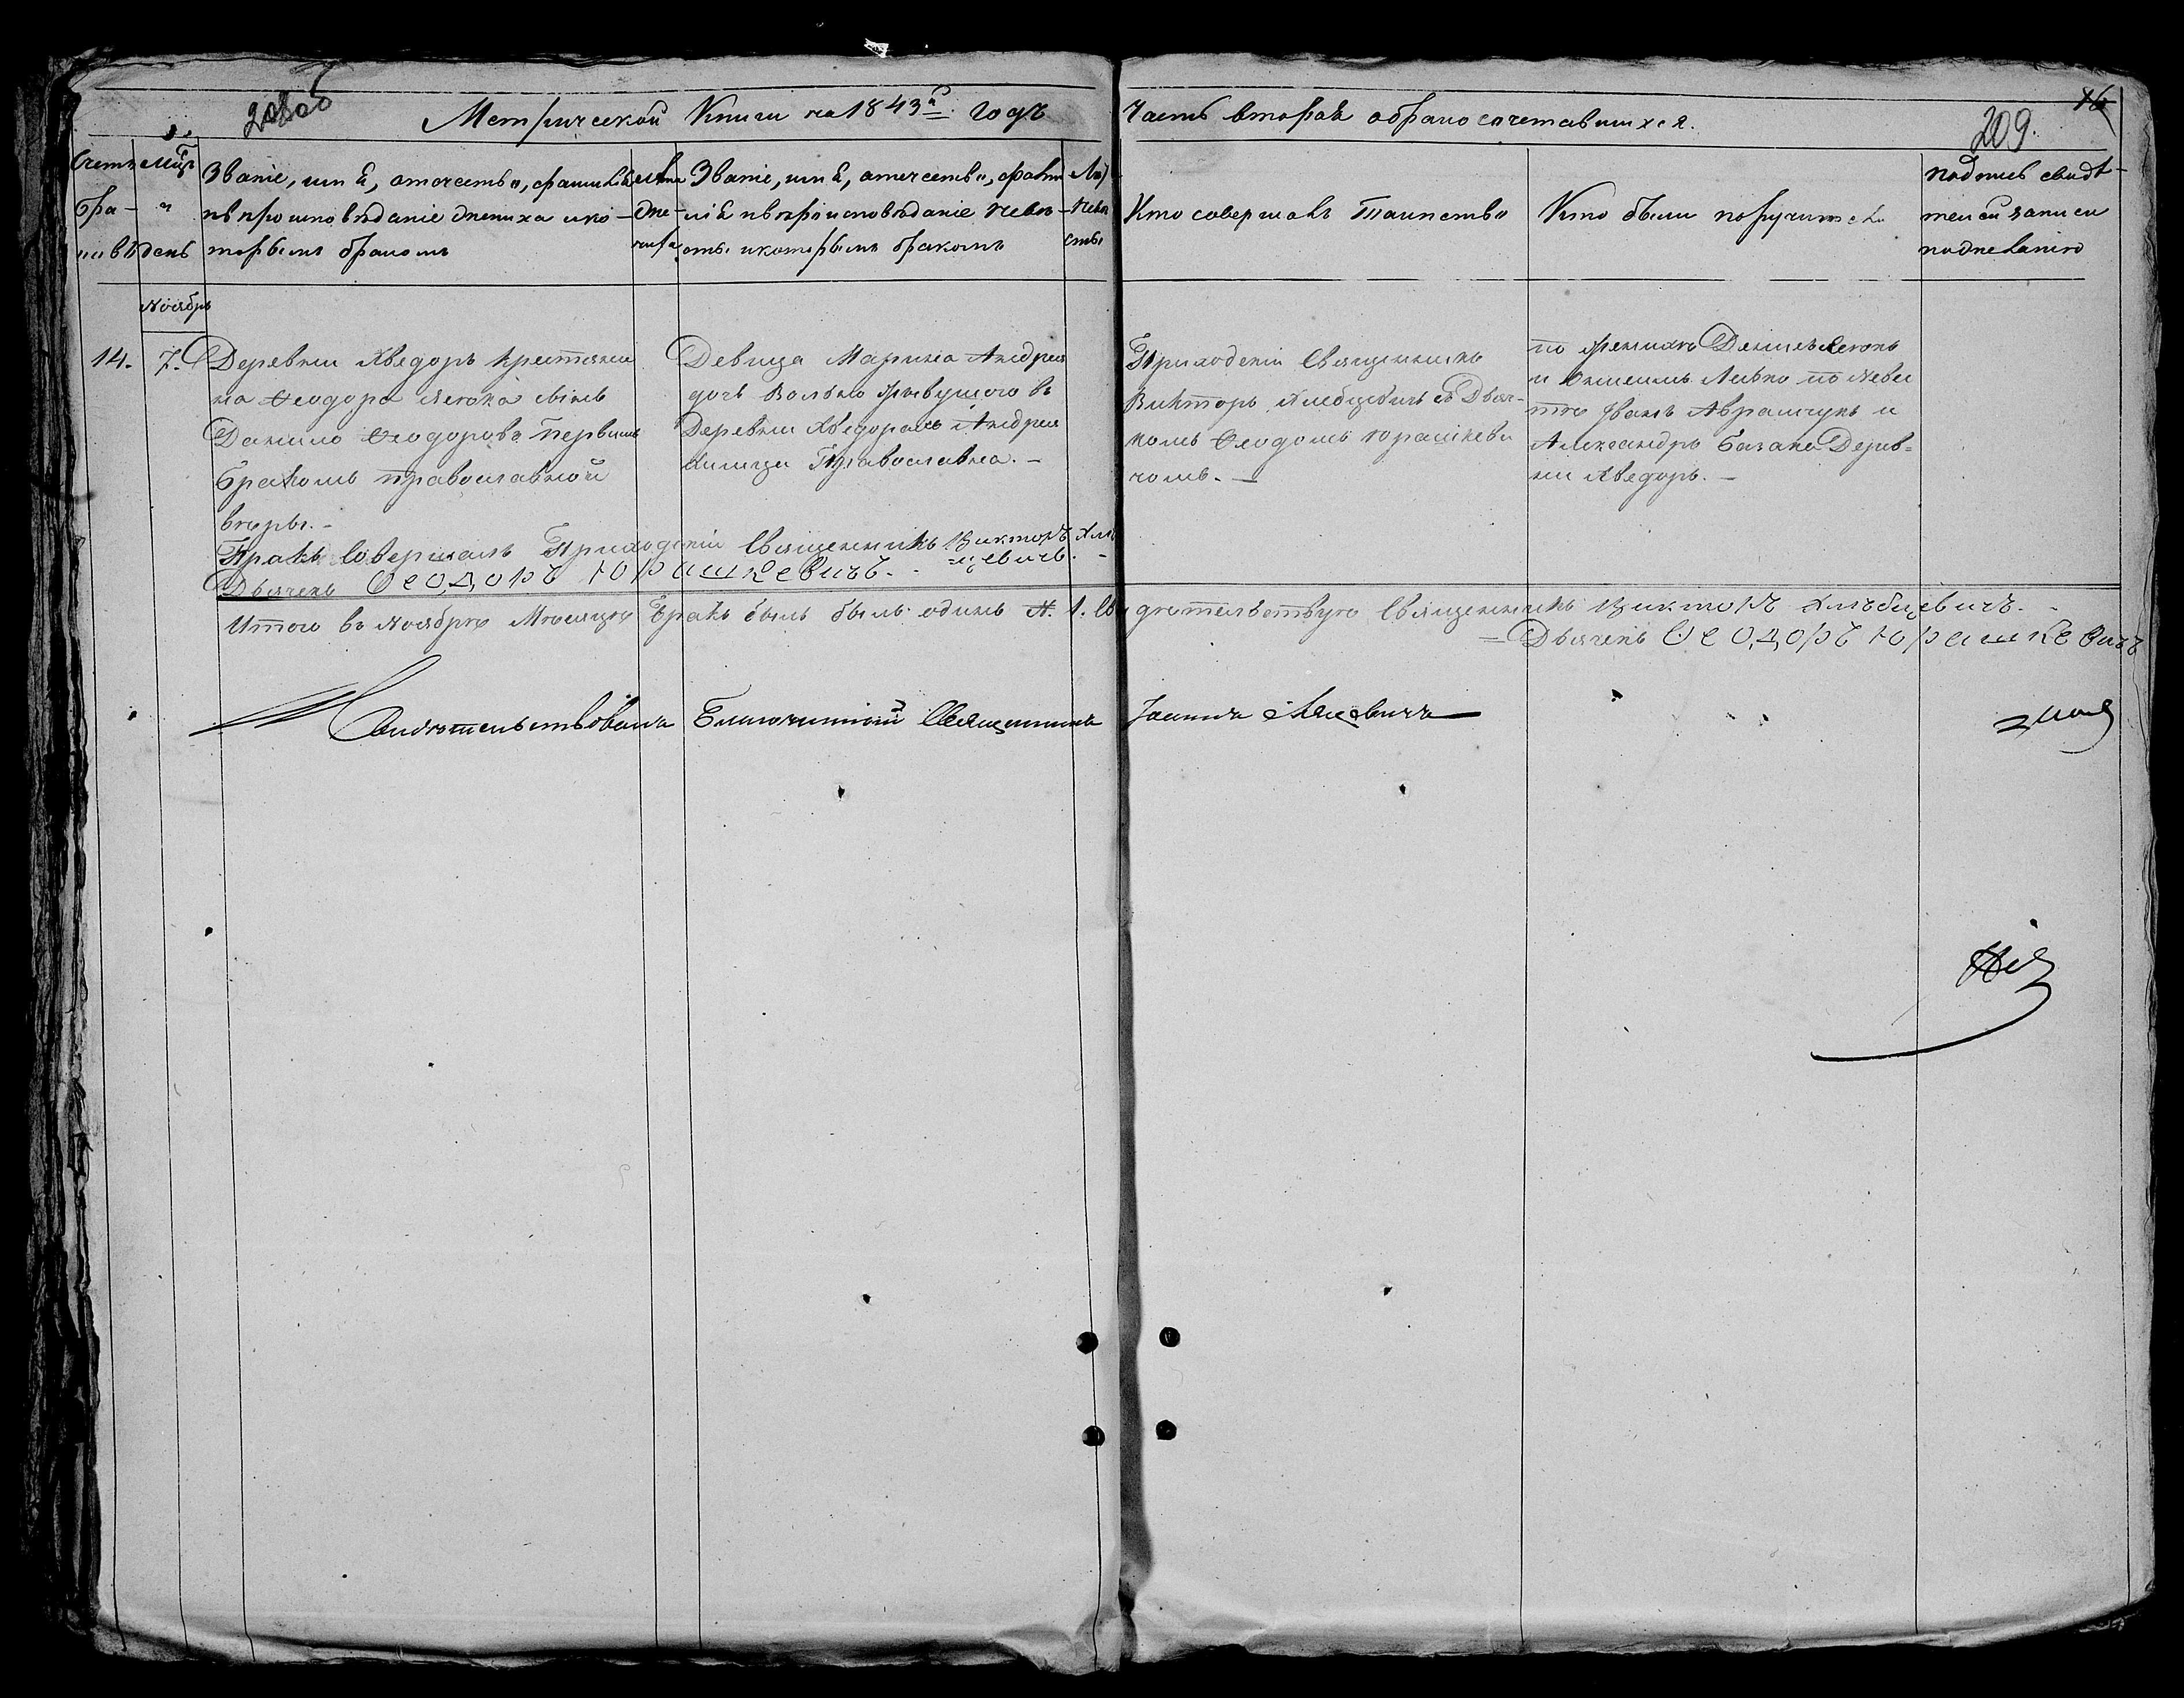 208об
Метрической Книги на 1843й годъ
Часть вторая о бракосочетавшихся.
16
209.
Счетъ
бра-
ковъ
Мцъ
и
день
Званіе, имя, отечество, фамилія
и вѣроисповѣданіе жениха и ко-
торымъ бракомъ
лѣта
Же-
ниха
Званіе, имя, отечество, фами
лія и вѣроисповѣданіе невѣ-
сты и которымъ бракомъ
Лѣ
Невѣ
сты
Кто совершалъ Таинство
Кто были поручители
подпись свидѣ-
телей записи
по желанію
Ноябрь
14.
7.
Деревни Хведоръ крестяни
на Ѳеодора сынъ
Данило Ѳеодоровъ первымъ
бракомъ православной
вѣры.-
Девица Марина Андрея
дочь живущого въ
Деревни Хведорахъ Андрея
Православна.-
Приходскій Священникъ
Викторъ Хлебцевичъ съ Дьяч-
комъ Ѳеодомъ Юрашкеви
чомъ.-
по женихѣ
и Левко по неве
сте Иванъ Аврамчукъ и
Александръ Дерев=
ни Хведоръ.-
Бракъ Совершалъ Приходскій Священникъ Викторъ Хлѣб
цевичъ.-
Дьячекъ Ѳеодоръ Юрашкевичъ.
Итого въ Ноябрѣ Мѣсяцѣ Бракъ былъ былъ одинъ №. 1. Свидѣтельствую Священникъ Викторъ Хлѣбцевичъ.-
=Дьячекъ Ѳеодоръ Юрашкевичъ
Свидѣтельствовалъ Благочинный Священникъ Іоаннъ